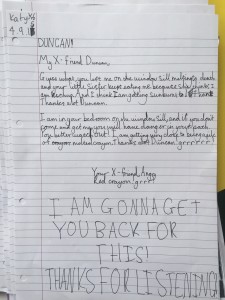 Katy
4.9.1
DUNCAN!!
My X-Friend Duncan,
Guess what you left me on the window sill melting to death
and your little sister kept eating me because she thinks I
am Ketchup. And I think I am getting sunburns
Thanks alot Duncan.
I am in your bedroom on the window sill, and if you don't
come and get me you will have change on in your
You better hurry cuz I am getting very close to being
of crayon molten crayon. thanks alot Duncan. grrrrrr!
Your X-friend, Angry
Red crayon. grrr!
I AM GONNA GET
YOU BACK FOR
THIS!
THANKS FOR LISTENING!